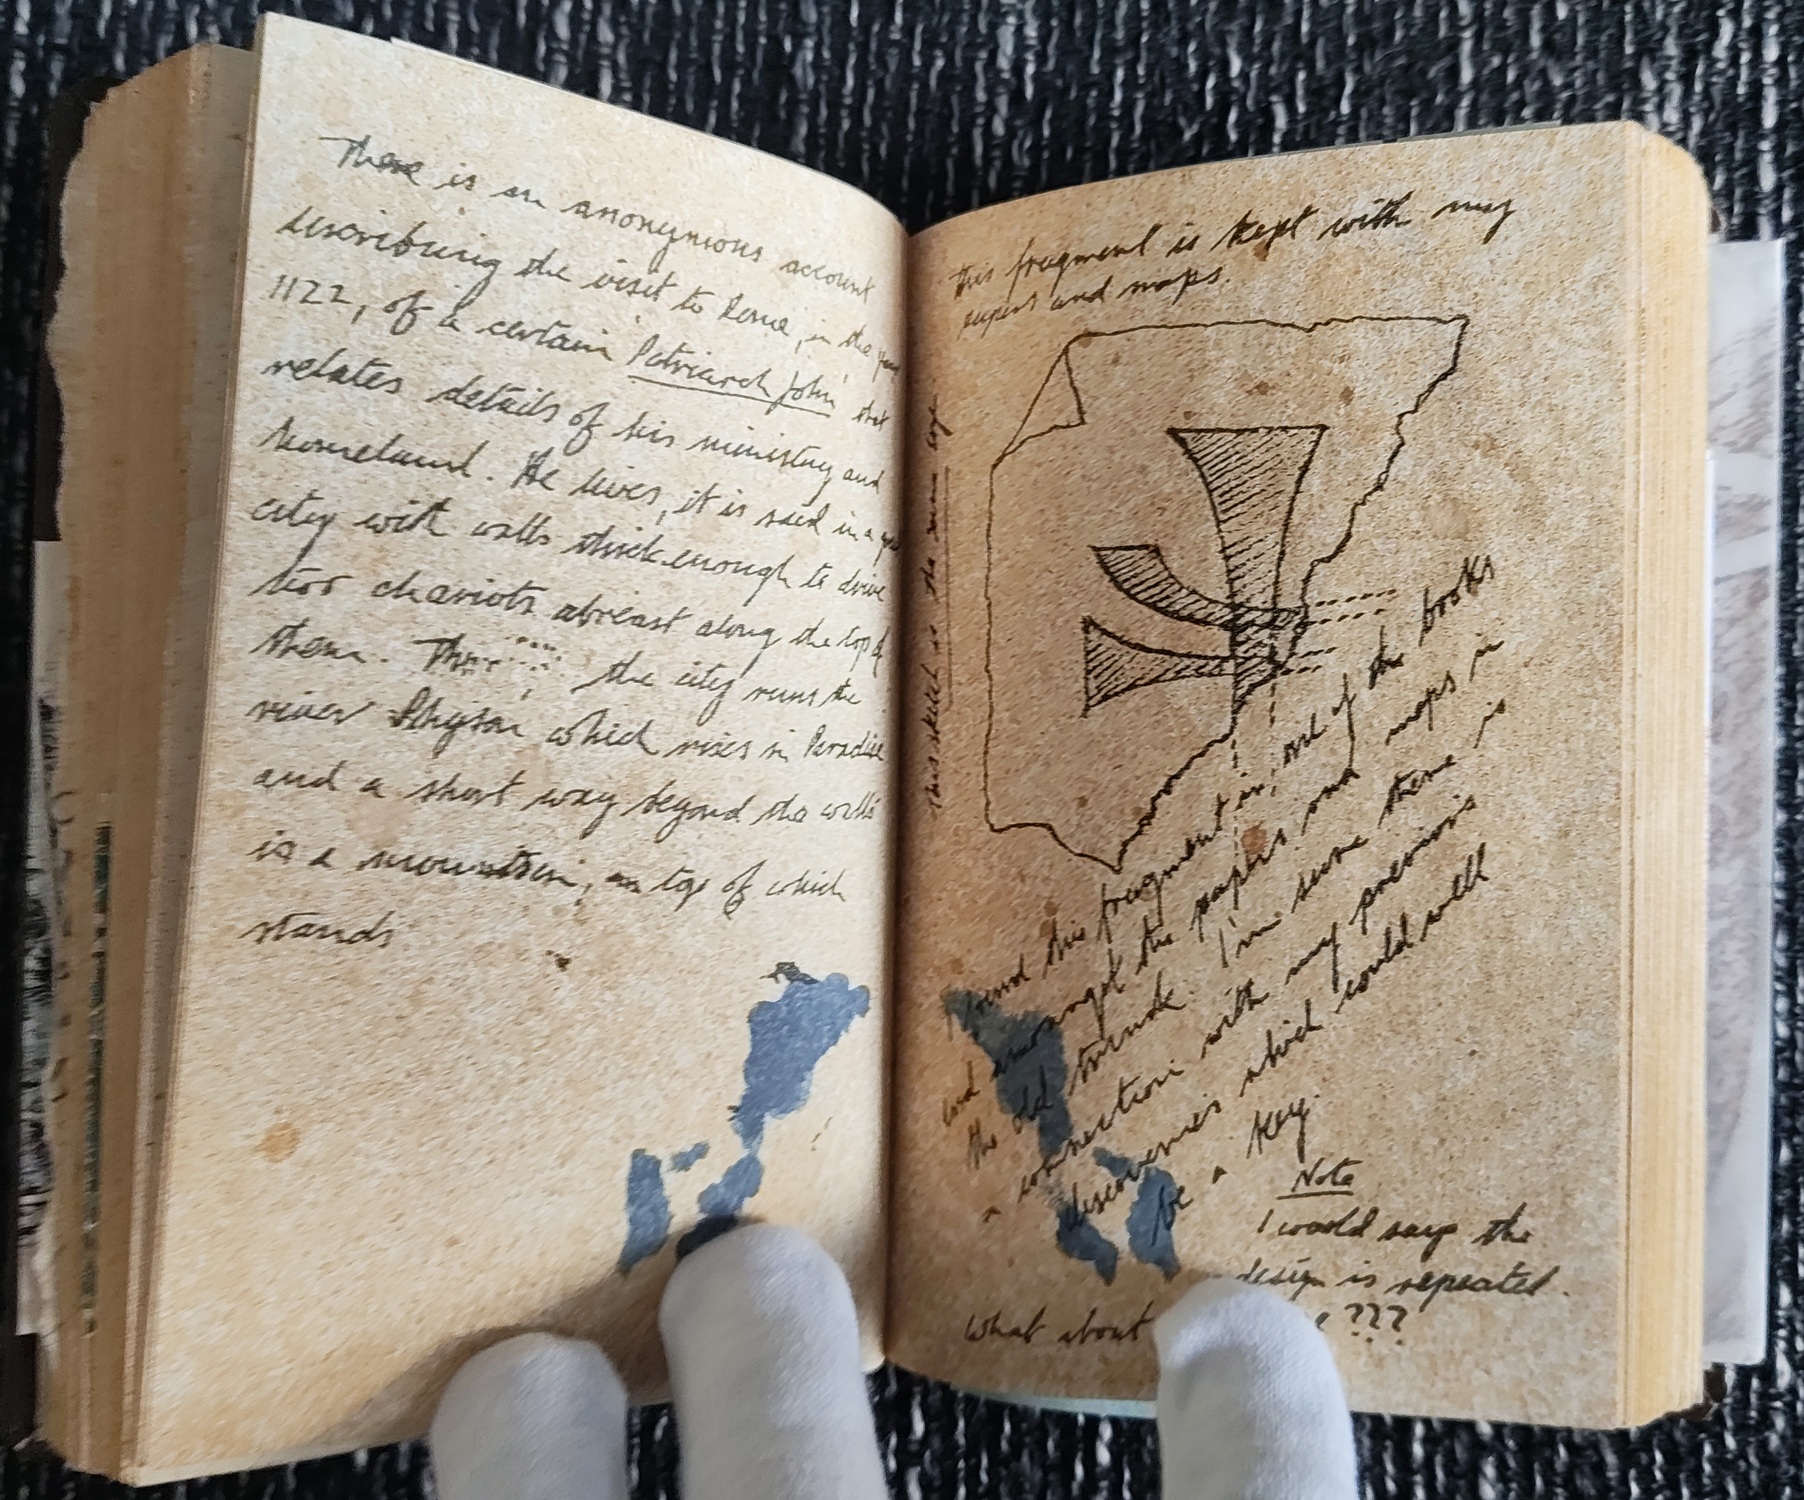 There is an anonymous account
describing the visit to Rome, in the year
1122, of a certain Patriarch John that
relates details of his ministry and
homeland. He lives, it is said in a
city with walls thick enough to drive
two chariots abreast along the top of
them. the city runs the
river Physon which rises in Paradise
and a short way beyond the walls
is a mountain, on top of which
stands
this fragment is kept with my
papers and maps.
This sketch is the same
found this fragment in, out of the books
and the papers and maps in
the old trunk. I'm sure there is
a connection with my previous
discoveries which could well
be a key.
Note
I would say the
design is repeated.
What about ???